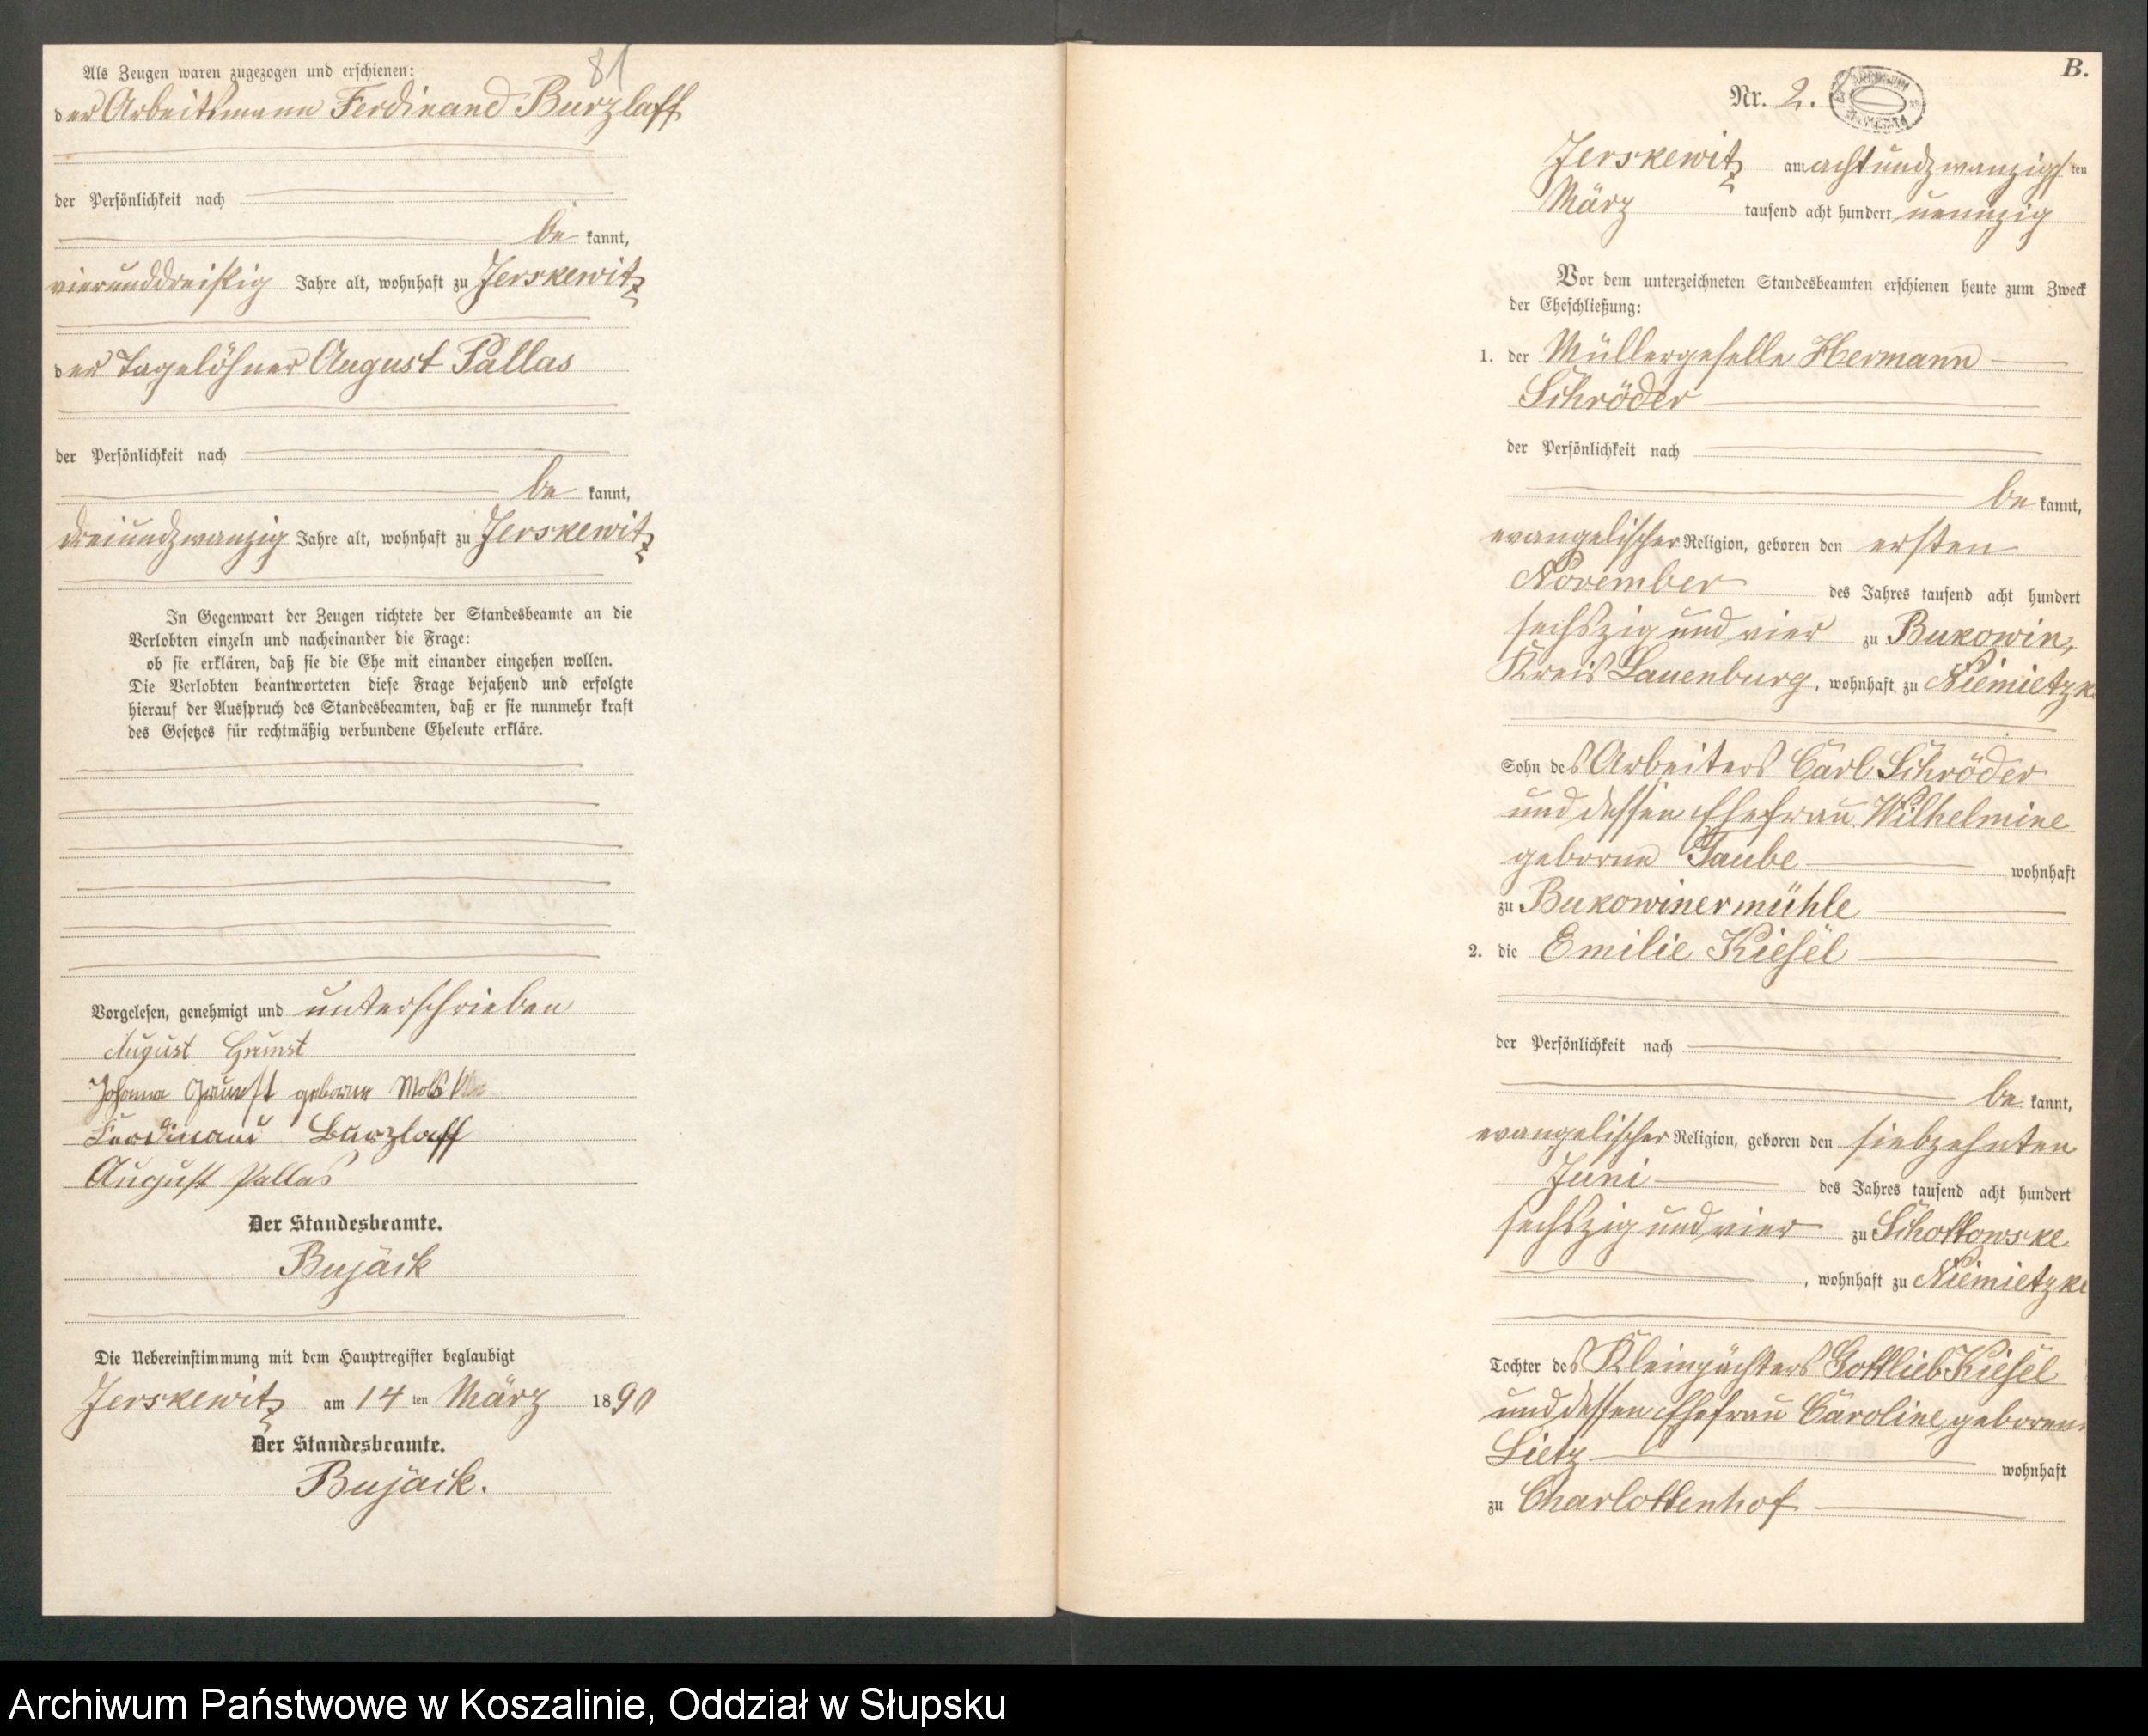 81
Als Zeugen waren zugezogen und erschienen:
der Arbeitsmann Ferdinand Burzlaff
der Persönlichkeit nach
be kannt,
vierunddreißig Jahre alt, wohnhaft zu Jerskewitz
der Tagelöhner August Pallas
der Persönlichkeit nach
be kannt,
dreiundzwanzig Jahre alt, wohnhaft zu Jerskewitz
In Gegenwart der Zeugen richtete der Standesbeamte an die
Verlobten einzeln und nacheinander die Frage:
ob sie erklären, daß sie die Ehe mit einander eingehen wollen.
Die Verlobten beantworteten diese Frage bejahend und erfolgte
hierauf der Ausspruch des Standesbeamten, daß er sie nunmehr kraft
des Gesetzes für rechtmäßig verbundene Eheleute erkläre.
Vorgelesen, genehmigt und unterschrieben
August Grunst
Johanna Grunst geborne
Ferdinand Burzlaff
August Pallas
Der Standesbeamte.
Bujack
Die Uebereinstimmung mit dem Hauptregister beglaubigt
Jerskewitz am 14 ten März 1890
Der Standesbeamte.
Bujack.
B.
Nr. 2.
Jerskewitz am achtundzwanzigsten
März tausend acht hundert neunzig
Vor dem unterzeichneten Standesbeamten erschienen heute zum Zweck
der Eheschließung:
1. der Müllergeselle Hermann
Schröder
der Persönlichkeit nach
be kannt,
evangelischer Religion, geboren den ersten
November des Jahres tausend acht hundert
sechszig und vier zu Bukowin,
Kreis Lauenburg, wohnhaft zu Niemietzke
Sohn des Arbeiters Carl Schröder
und dessen Ehefrau Wilhelmine
geborne Taube wohnhaft
zu Bukowinermühle
2. die Emilie Kiesel
der Persönlichkeit nach
be kannt,
evangelischer Religion, geboren den siebzehnten
Juni des Jahres tausend acht hundert
sechszig und vier zu Schottowske
, wohnhaft zu Niemietzke
Tochter des Kleinpächters Gottlieb Kiesel
und dessen Ehefrau Caroline geborene
Lietz wohnhaft
zu Charlottenhof
Archiwum Państwowe w Koszalinie, Oddział w Słupsku